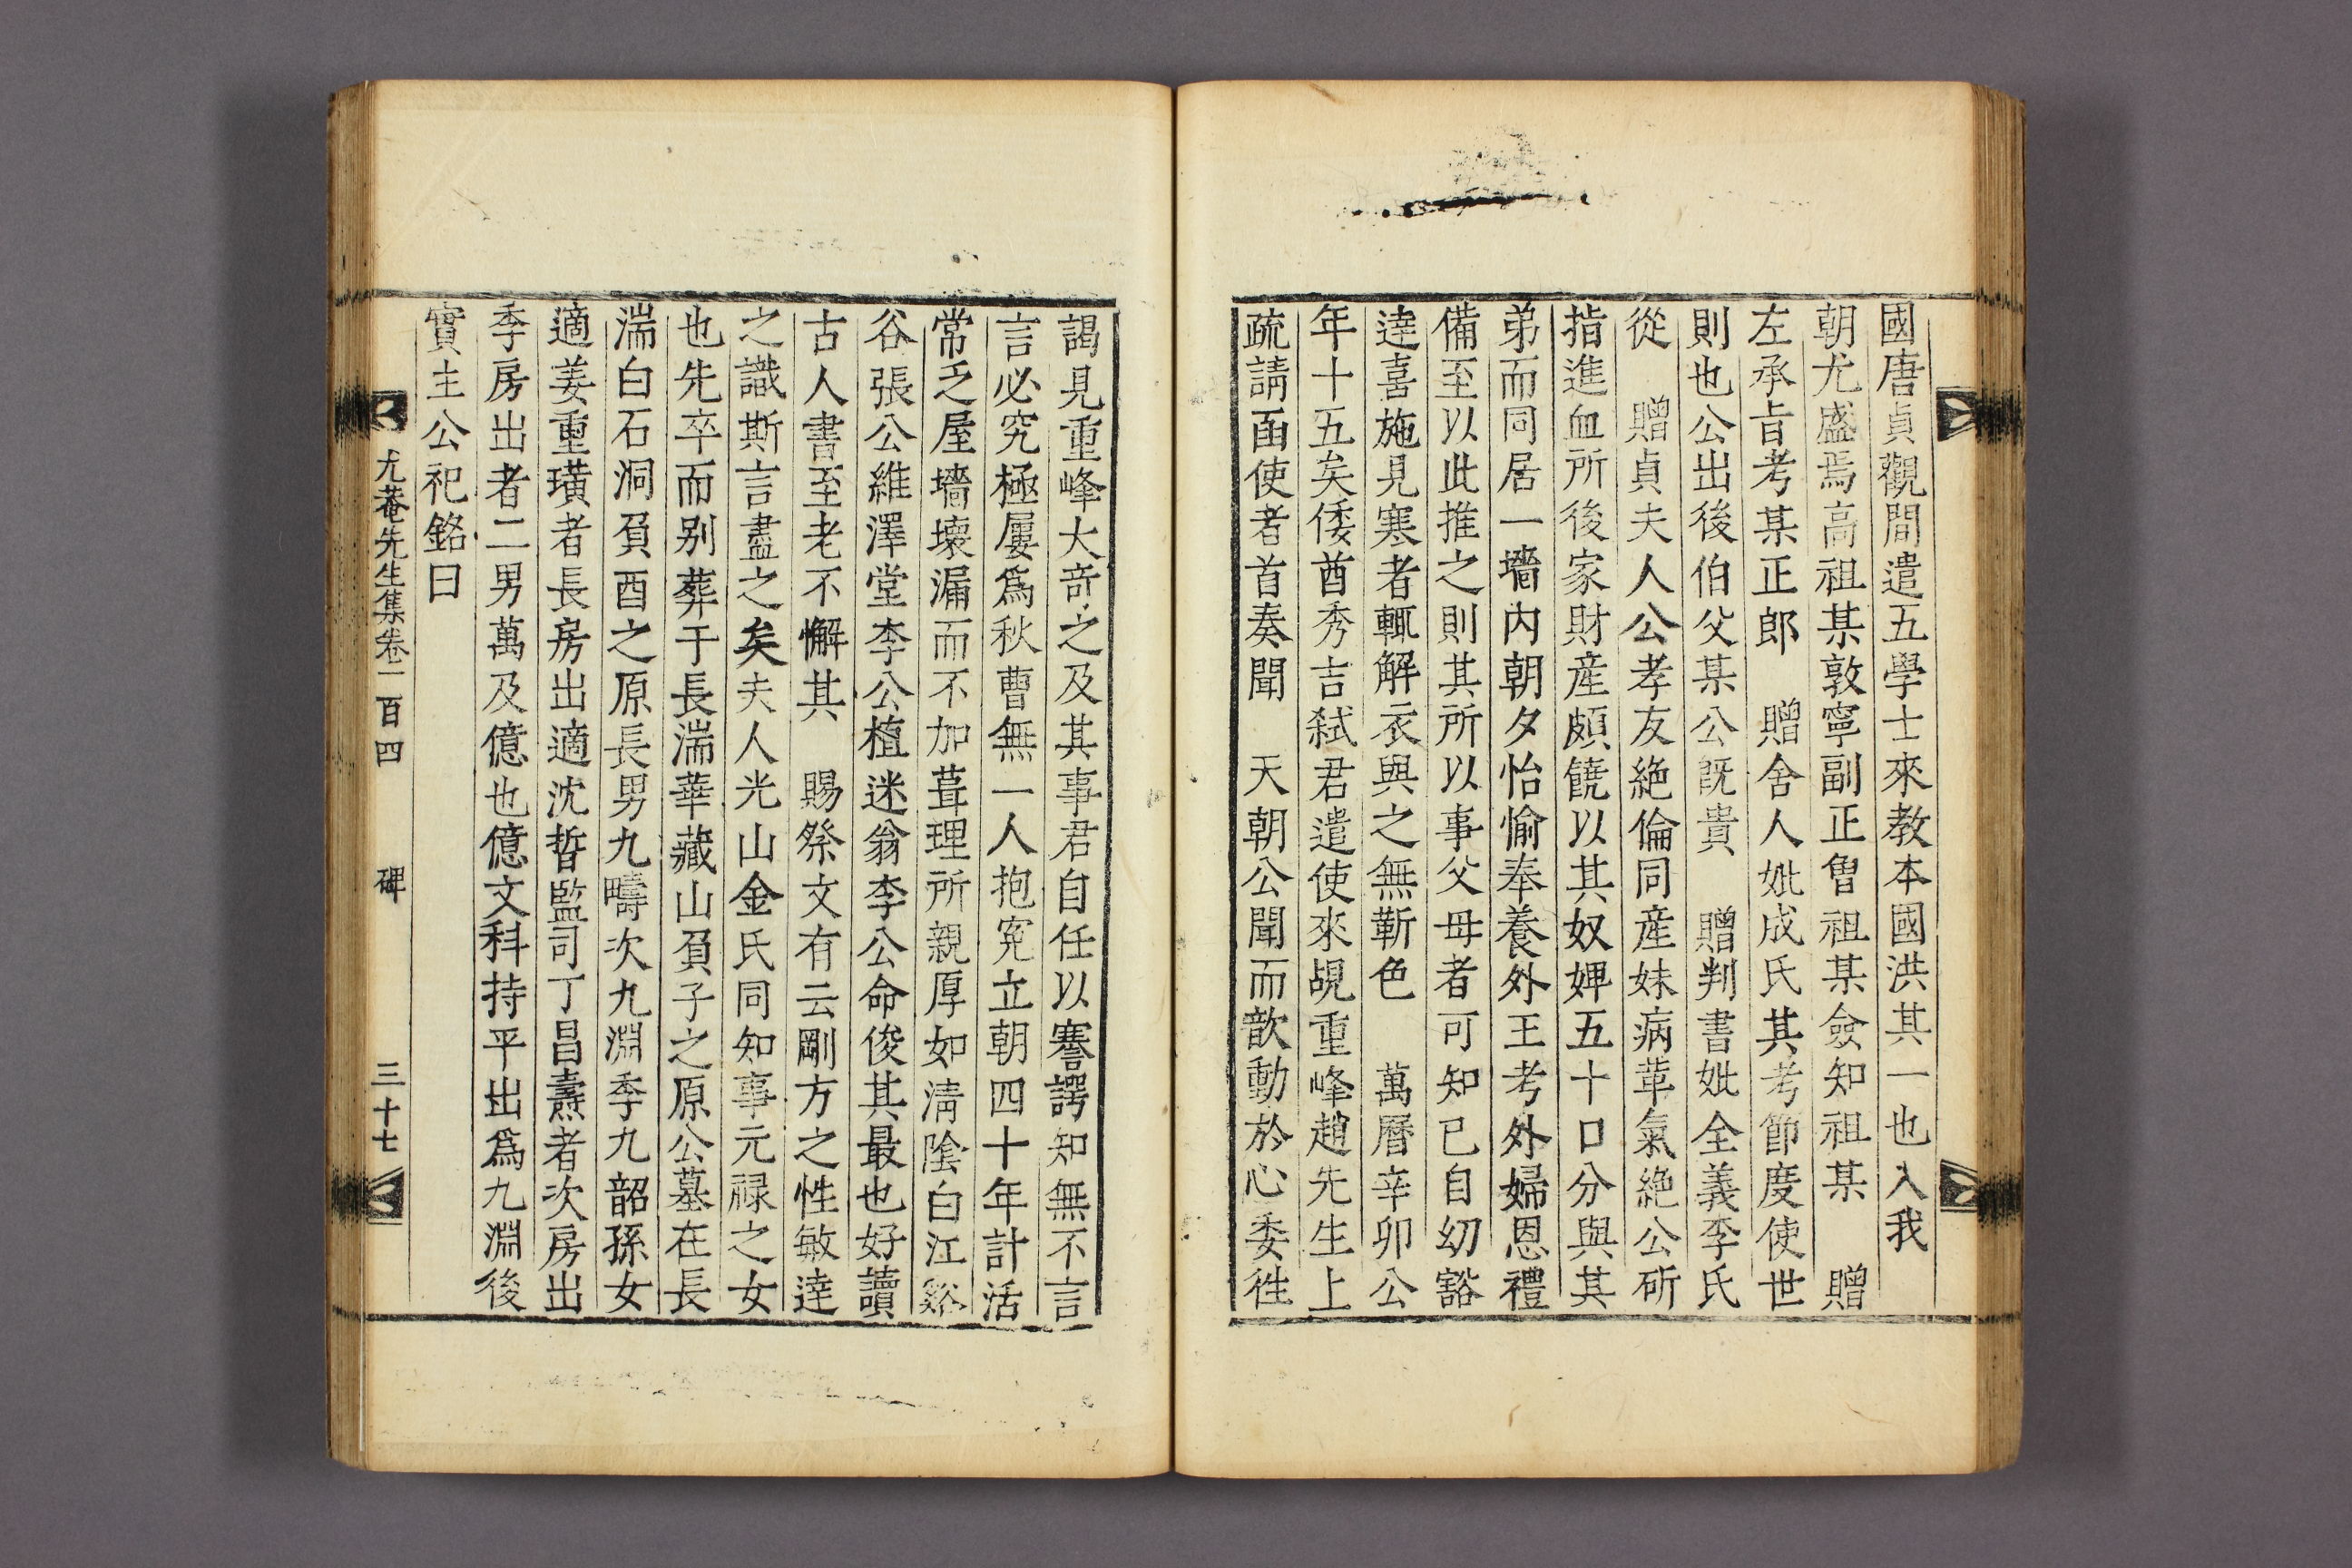 國唐貞觀間遣五學士來教本國洪其一也入我
朝尤盛焉高祖某敦寧副正曾祖某僉知祖某 贈
左承旨考某正郎 贈舍人妣成氏其考節度使世
則也公出後伯父某公旣貴 贈判書妣全義李氏
從 贈貞夫人公孝友絶倫同産妹病革氣絶公斫
指進血所後家財産頗饒以其奴婢五十口分與其
弟而同居一墻内朝夕怡愉奉養外王考外婦恩禮
備至以此推之則其所以事父母者可知已自幼豁
達喜施見寒者輒解衣與之無靳色 萬曆辛卯公
年十五矣倭酋秀吉弑君遣使來覘重峰趙先生上
疏請函使者首奏聞 天朝公聞而歆動於心委徃
謁見重峰大奇之及其事君自任以謇諤知無不言
言必究極屢爲秋曹無一人抱寃立朝四十年計活
常乏屋墻壞漏而不加葺理所親厚如清陰白江谿
谷張公維澤堂李公植迷翁李公命俊其最也好讀
古人書至老不懈其 賜祭文有云剛方之性敏達
之識斯言盡之矣夫人光山金氏同知事元禄之女
也先卒而别葬于長湍華藏山負子之原公墓在長
湍白石洞負酉之原長男九疇次九淵季九韶孫女
適姜重璜者長房出適沈晢監司丁昌燾者次房出
季房出者二男萬及億也億文科持平出爲九淵後
實主公祀銘曰
尤菴先生集卷一百四 碑 三十七